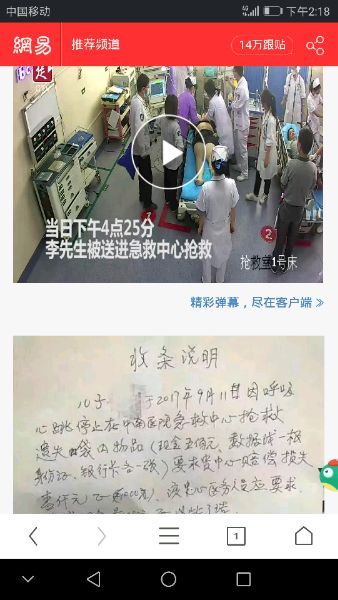 中国移动
4G
下午2:18
網易
推荐频道
14万跟贴
当日下午4点25分
李先生被送进急救中心抢救
抢救室1号床
2
精彩弹幕，尽在客户端
收条说明
儿子 于2017年9月11日因呼吸
心跳停止在中南医院急救中心抢救
遗失 袋内物品（现金五佰元、数据线一根
身份证、银行卡各一张）要求贵中心赔偿损失
壹仟元 1000元），该中心医务人员应要求
1